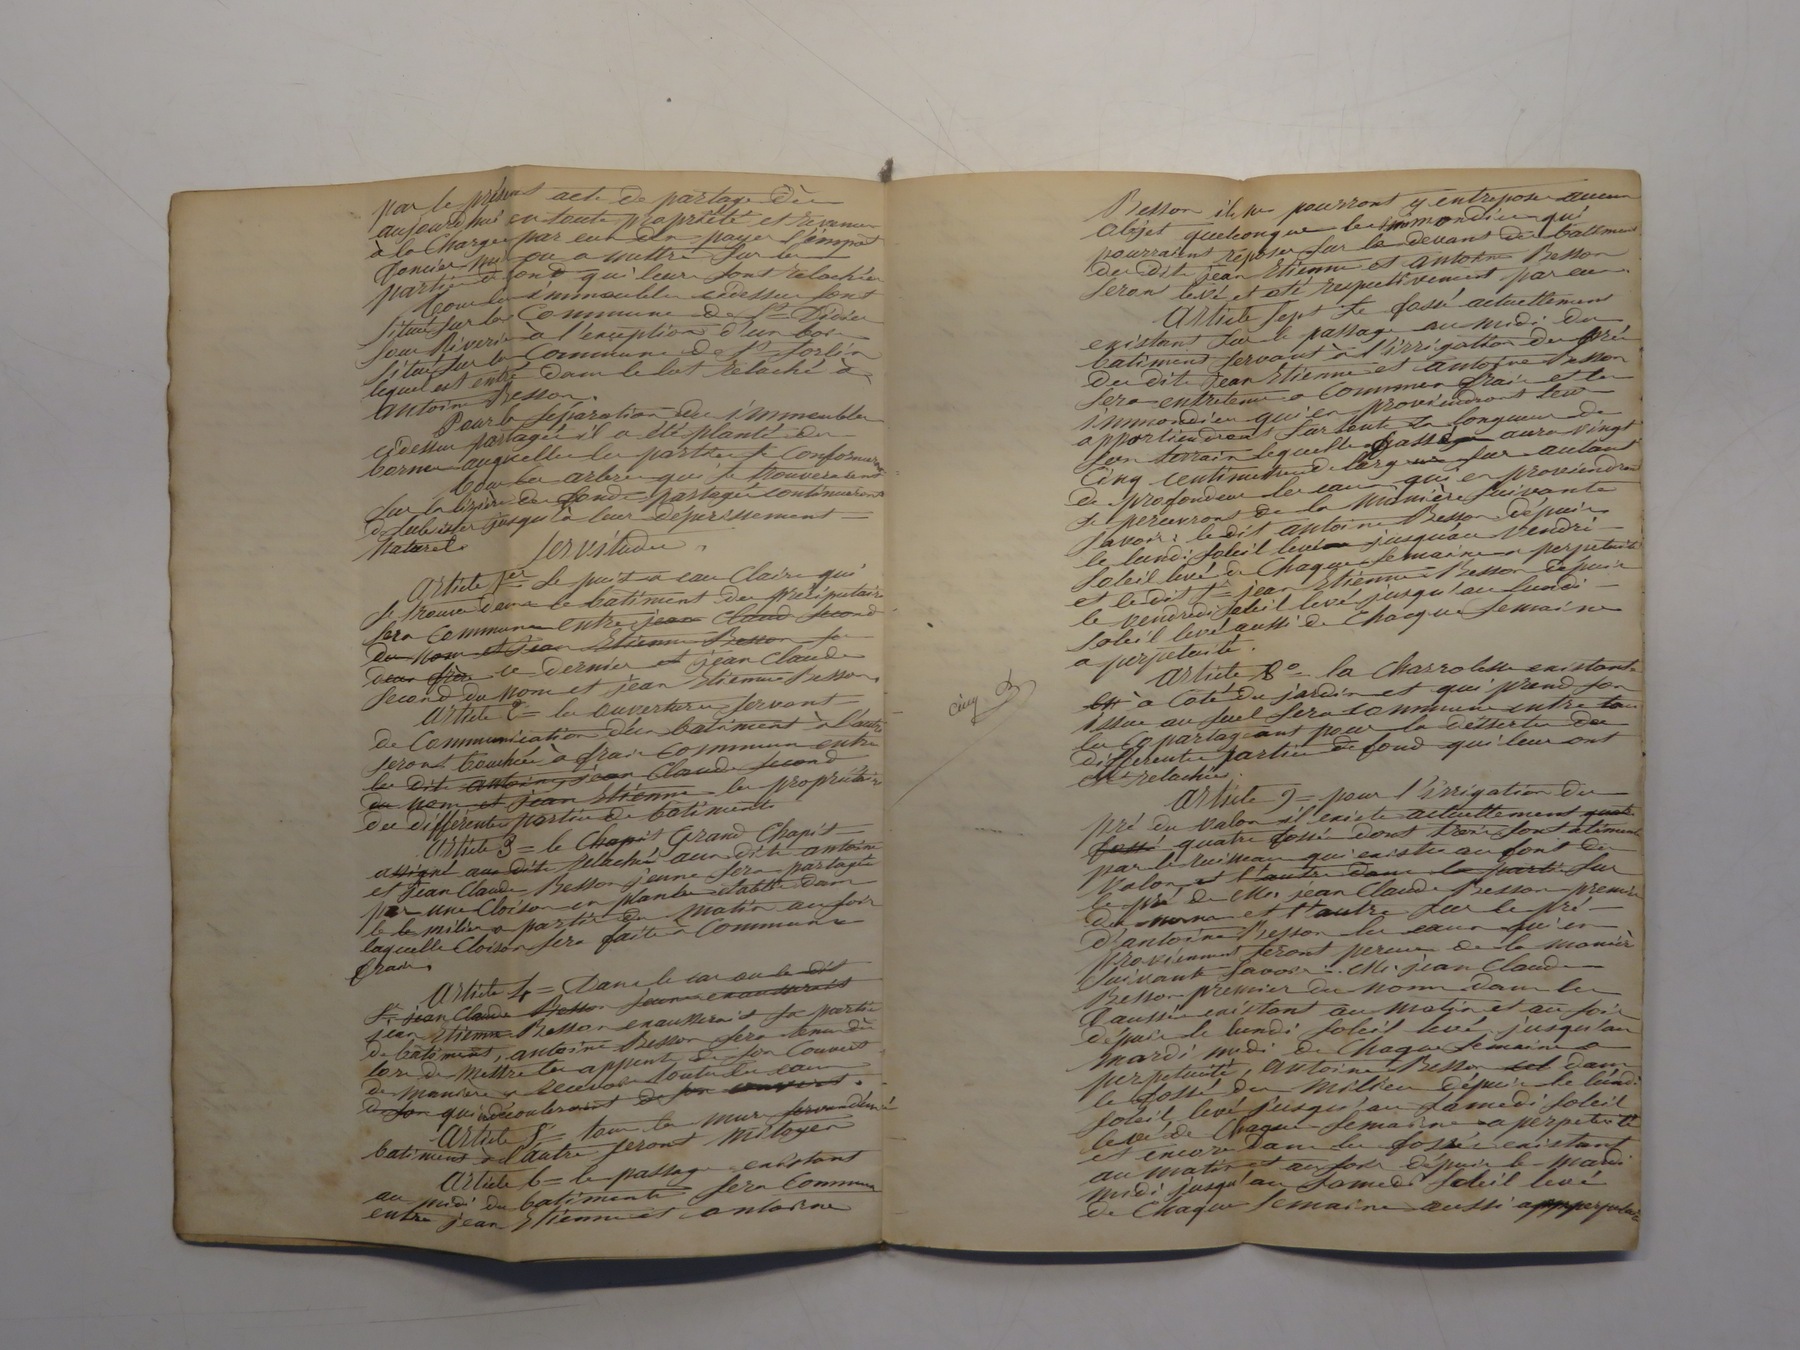 par le présent acte de partage dès
aujourdhui en toute propriété et revenu
à la Charge par eux d'en payer l'impot
foncier mis ou a mettre sur les
parties de fond qui leurs sont relachées
Tous les immeubles cidessus sont
situé sur la Commune de St Didier
sous Riverie à l'exception d'un bois
situé sur la Commune de St Sorlin
lequel est entré dans le lot relaché à
Antoine Besson.
Pour la séparation des immeubles
cidessus partagés il a été planté des
bornes auquelles les parties se conformeront
Tous les arbres qui se trouveraient
sur la lizière des fonds partagés continueront
d subsister jusqu'à leur dépérissement
Naturel.
Servitudes.
Article 1er Le puit à eau Claire qui
se trouve dans le batiment du préciputaire
sera Commune entre jean Claud second
du nom et jean Etienne Besson
ce dernier et jean Claude
second du nom et jean Etienne Besson.
Article 2 = les ouvertures servant
de Communication d'un batiment à l'autre
seront bouchée à frais Commun entre
les dits antoine, jean Claude second
du nom et jean Etienne les propriétaires
des différentes parties de batiments
Article 3 = le Chapit Grand Chapit
assigné aux dits relaché aux dits antoine
et Jean Claude Besson jeune sera partagé
par une Cloison en planche établie dans
le milieu a partir du matin au soir
laquelle Cloison sera faite a Commune
frais.
Article 4 = Dans le cas ou le dit
St jean Claude Besson jeune exausserait
jean Etienne Besson exausserait sa partie
de batiment, antoine Besson sera tenu dès
lors de mettre les appent de son Couvert
de manière a recevoir toutes les eaux
de son qui découleraient de son couvert.
Article 5 = tous les murs servant d'un
batiment à l'autre seront mitoyen
Article 6 = le passage existant
au midi du batiments sera Commun
entre jean Etienne et antoine
cinq
Besson ils ne pourront y entreposer aucun
objet quelconque les immondices qui
pourraient réposer sur le devant des batiment
des dits jean Etienne et antoine Besson
seron levé et oté respectivement par eux.
Article sept Le fossé actuellement
existant sur le passage au midi du
batiment servant à l'irrigation du pré
des dits jean Etienne et antoine Besson
sera entretenu a Commun frais et les
immondices qui en proviendront leur
appartiendront sur toute la longueur de
son terrain lequelle fossé aura vingt
Cinq centimètres de large sur autant
de profondeur les eaux qui en proviendront
se percevront de la manière suivante
savoir: le dit antoine Besson dépuis
le lundi soleil levé jusqu'au vendrédi
soleil levé de Chaque semaine a perpetuité
et le dit St jean Etienne Besson dépuis
le vendredi soleil levé jusqu'au lundi
soleil levé aussi de Chaque semaine
a perpetuité.
Article 8º = la Charrolesse existant
à Coté du jardin et qui prend son
issue au suel sera commune entre tous
les Co partageant pour la désserte des
différentes parties de fond qui leur ont
été relachée.
Article 9 = pour l'irrigation du
pré du valon il existe actuellement quatre
fossé quatre fossé dont trois sont alimenté
par le ruisseau qui existe au font du
valon, et l'autre dans la partie sur
le pré de Mr jean Claude Besson premier
du nom et l'autre sur le pré
d'antoine Besson les eaux qui en
proviennent seront percues de la manière
suivante savoir: Mr jean Claude
Besson premier du nom dans les
fossés existant au matin et au soir
dépuis le lundi soleil levé jusqu'au
mardi midi de Chaque semaine a
perpétuité, antoine Besson dans
le fossé du milieu dépuis le lundi
soleil levé jusqu'au samedi soleil
levé de Chaque semaine a perpetuité
et encore dans les fossés existant
au matin et au soir dépuis le mardi
midi jusqu'au samedi soleil levé
de Chaque semaine aussi a perpetuité